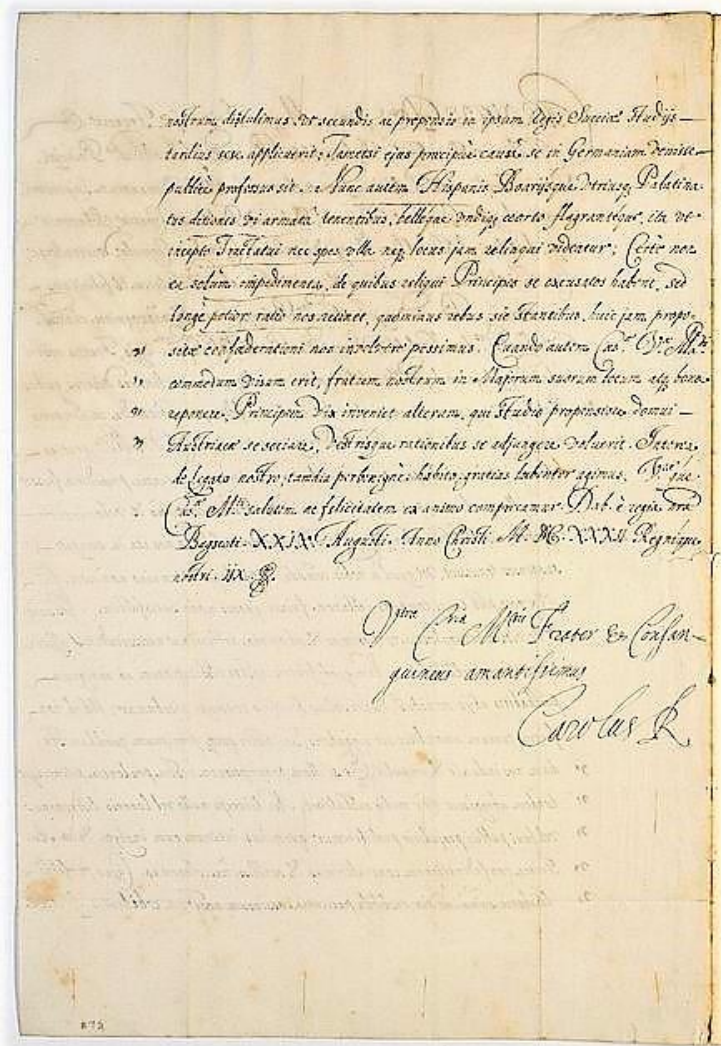 nostrum distulimus, ut secundis ac propensis in ipsum Regis Sueciæ studijs
tardius sese applicuerit; Tametsi ejus præcipuè causâ se in Germaniam
publicè professus sit. Nunc autem Hispanis Boarijsque utriusq Palatina-
tus ditiones vi armatâ tenentibus, belloque undiq exorto flagranteque, ita ut
incepto Tractatui nec spes ulla neq locus jam relinqui videatur; Certè non
ea solum impedimenta, de quibus reliqui Principes se excusatos habent, sed
longè potior ratio nos retinet, quominus rebus sic stantibus, huic jam propo-
sitæ confæderationi nos involvere possimus. Quando autem Cas. Vræ Mti
commodum visum erit, fratrem nostrum in Majorum suorum locum atq bona
reponere, Principem vix inveniet alterum, qui studio propensiore domui
Austriacæ se sociare, vestrisque rationibus se adjungere voluerit. Interea
de Legato nostro, tamdiu perbenignè habito, gratias lubenter agimus. que
Cas. Mti salutem ac felicitatem ex animo comprecamur. Dab. è regia nrâ
XXIX. Augusti. Anno Christi M. DC. XXXII Regnique
nostri IIX.
Vtræ Mtis Frater & Consan-
guineus amantissimus
Carolus R